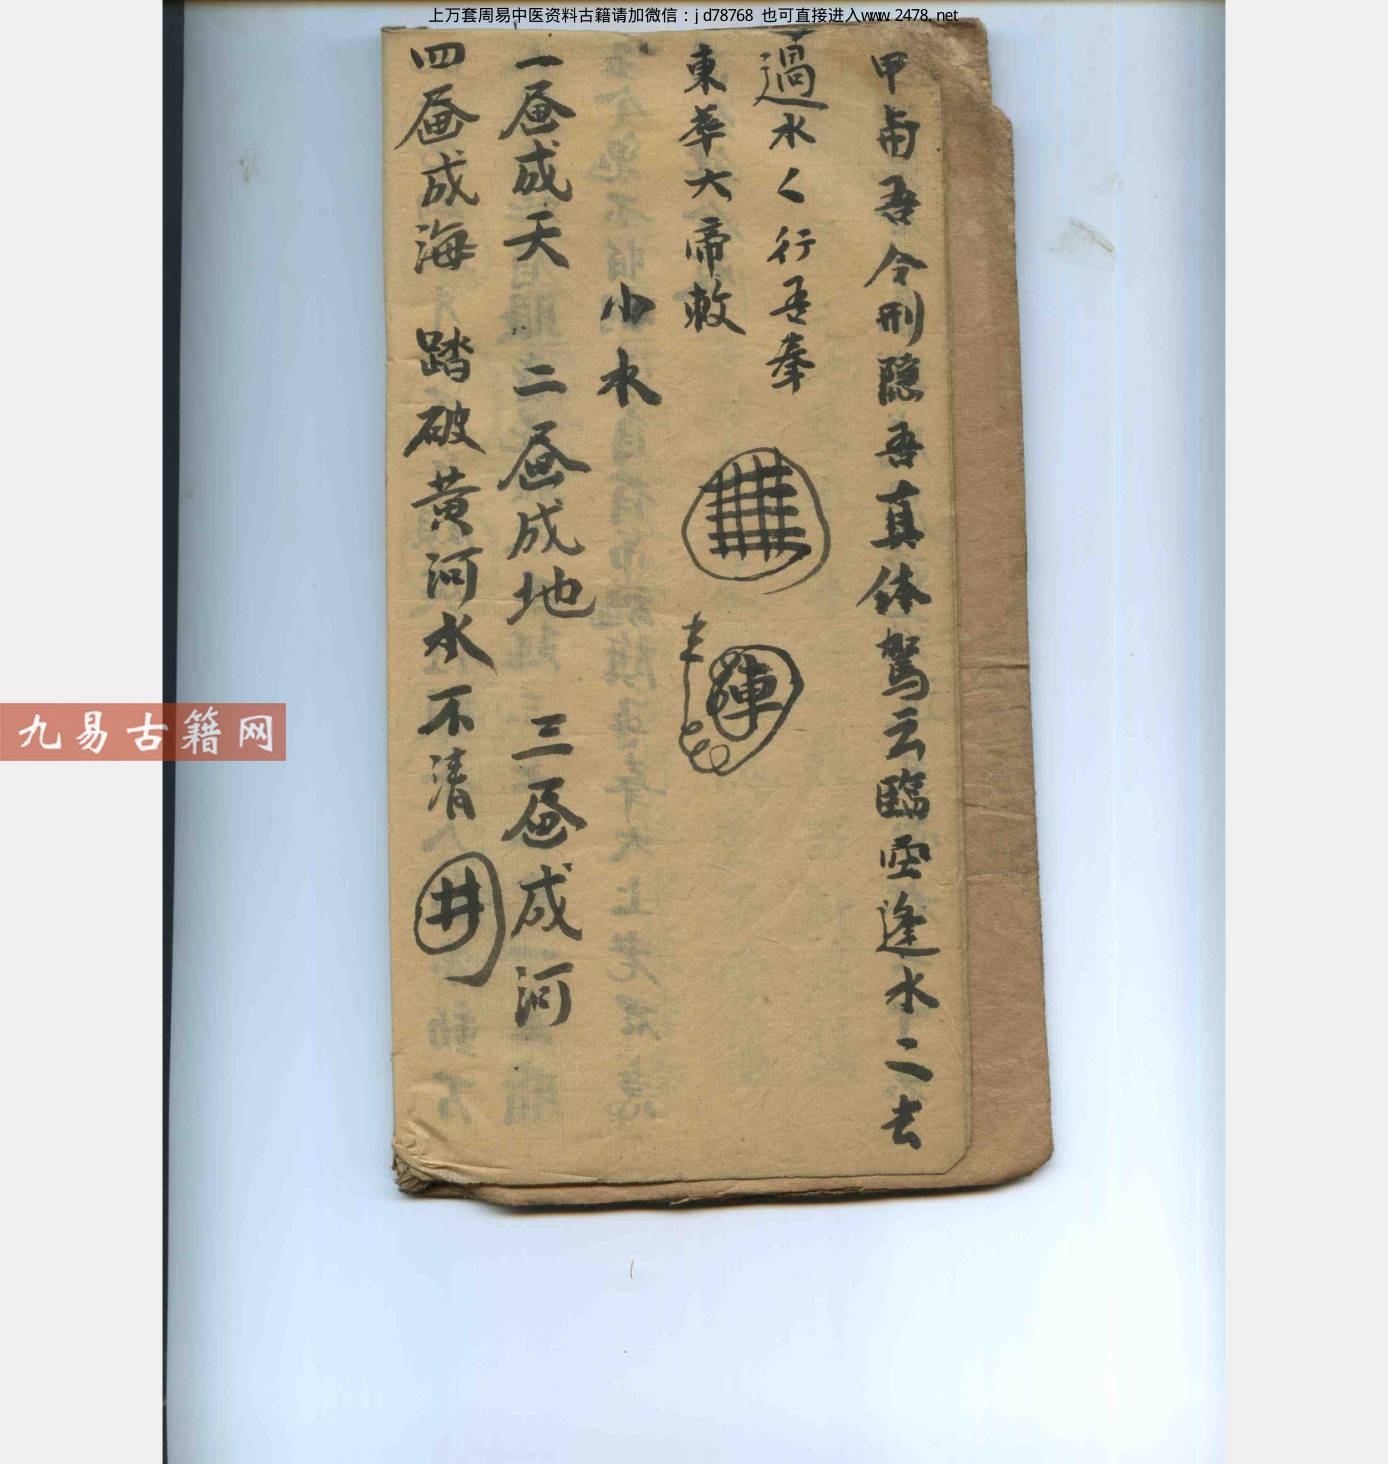 上万套周易中医资料古籍请加微信：jd78768 也可直接进入www.2478.net
甲
吾令刑隱吾真体駕云臨空逢水二去
過水く行吾奉
東華大帝敕
小水
一畫成天 二畫成地 三畫成河
四畫成海 踏破黄河水不清 井
九易古籍网